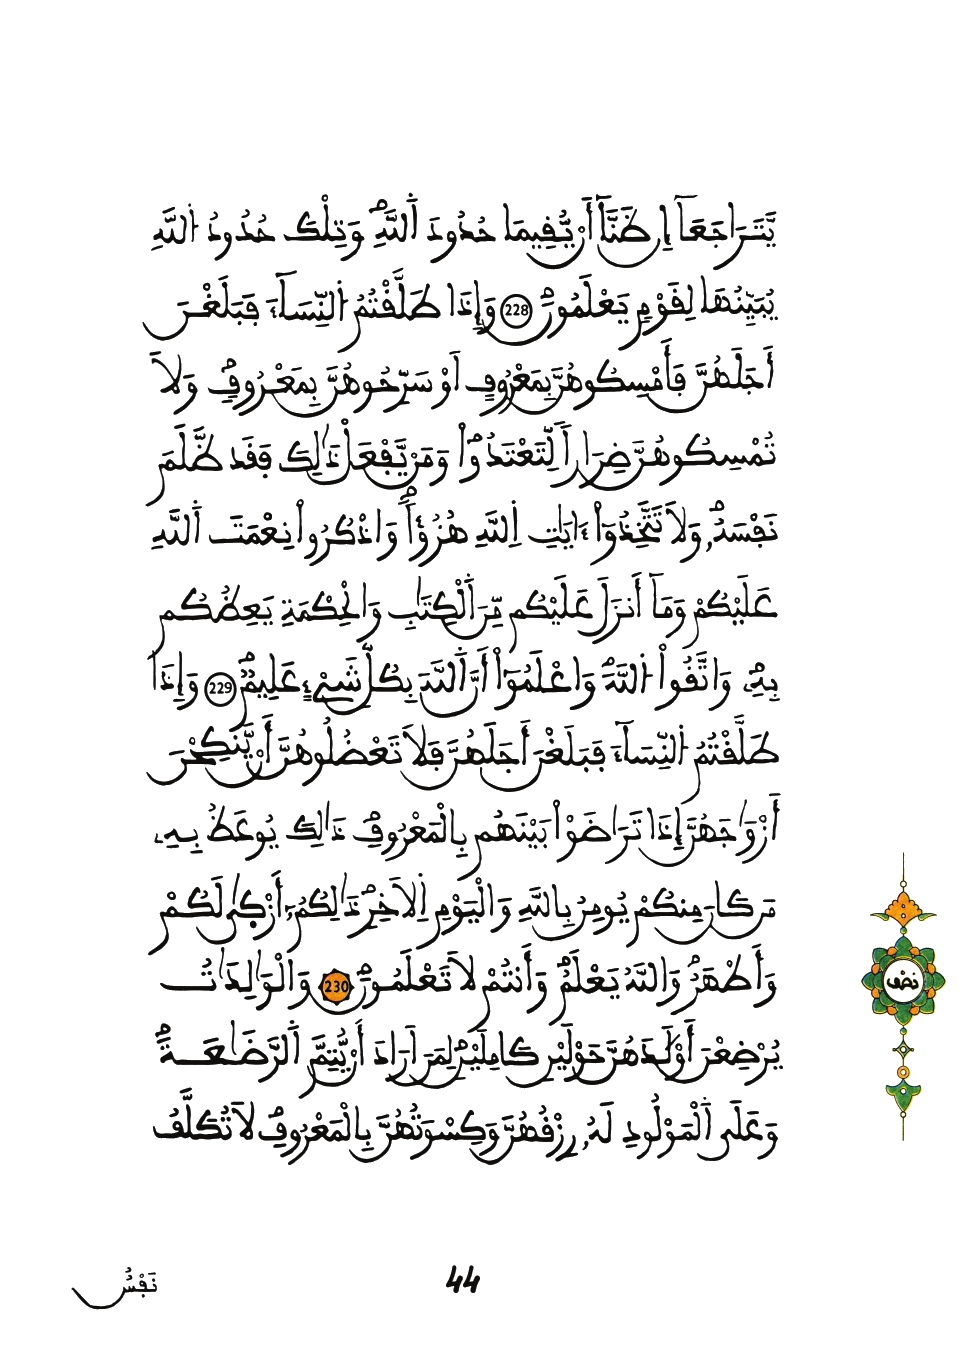 يَّتَرَاجَعَآ إِن ظَنَّآ أَنْ يُّقِيمَا حُدُودَ اَللَّهِۖ وَتِلْكَ حُدُودُ اُللَّهِ
يُبَيِّنُهَا لِقَوْمٖ يَعْلَمُونَۖ 228 وَإِذَا طَلَّقْتُمُ اُلنِّسَآءَ فَبَلَغْنَ
أَجَلَهُنَّ فَأَمْسِكُوهُنَّ بِمَعْرُوفٍ اَوْ سَرِّحُوهُنَّ بِمَعْرُوفٖۖ وَلَا
تُمْسِكُوهُنَّ ضِرَاراٗ لِّتَعْتَدُواْۖ وَمَنْ يَّفْعَلْ ذَٰلِكَ فَقَد ظَّلَمَ
نَفْسَهُۥۖ وَلَا تَتَّخِذُوٓاْ ءَايَٰتِ اِللَّهِ هُزُؤاٗۖ وَاذْكُرُواْ نِعْمَتَ اَللَّهِ
عَلَيْكُمْ وَمَآ أَنزَلَ عَلَيْكُم مِّنَ اَلْكِتَٰبِ وَالْحِكْمَةِ يَعِظُكُم
بِهِۦۖ وَاتَّقُواْ اُللَّهَۖ وَاعْلَمُوٓاْ أَنَّ اَللَّهَ بِكُلِّ شَےْءٍ عَلِيمٞۖ 229 وَإِذَا
طَلَّقْتُمُ اُلنِّسَآءَ فَبَلَغْنَ أَجَلَهُنَّ فَلَا تَعْضُلُوهُنَّ أَنْ يَّنكِحْنَ
أَزْوَٰجَهُنَّ إِذَا تَرَٰضَوْاْ بَيْنَهُم بِالْمَعْرُوفِۖ ذَٰلِكَ يُوعَظُ بِهِۦ
مَن كَانَ مِنكُمْ يُومِنُ بِاللَّهِ وَالْيَوْمِ اِلَاخِرِۖ ذَٰلِكُمُۥٓ أَزْكَىٰ لَكُمْ
وَأَطْهَرُۖ وَاللَّهُ يَعْلَمُۖ وَأَنتُمْ لَا تَعْلَمُونَۖ 230 وَالْوَٰلِدَٰتُ
يُرْضِعْنَ أَوْلَٰدَهُنَّ حَوْلَيْنِ كَامِلَيْنِ لِمَنَ اَرَادَ أَنْ يُّتِمَّ اَلرَّضَٰعَةَۖ
وَعَلَى اَلْمَوْلُودِ لَهُۥ رِزْقُهُنَّ وَكِسْوَتُهُنَّ بِالْمَعْرُوفِۖ لَا تُكَلَّفُ
نصف
نَفْسٌ
44